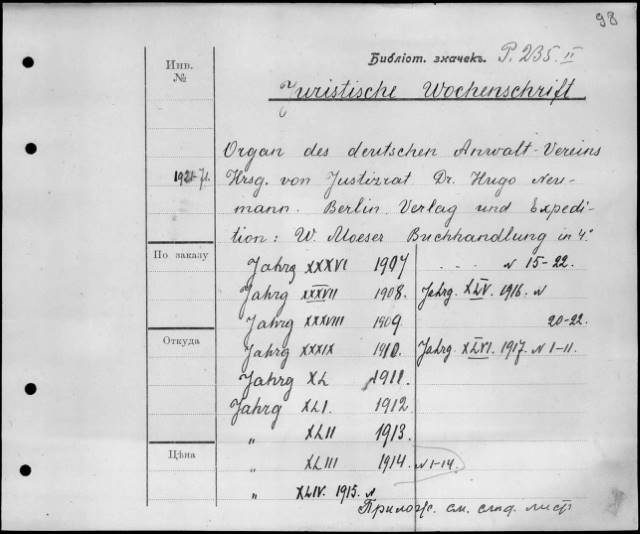 98
Библіот. значекъ. P. 235. II
Инв.
№
Juristische Wochenschrift
Organ des deutschen Anwalt-Vereins
1921
Hrsg. von Justizrat Dr. Hugo Neu-
mann. Berlin. Verlag und Expedi-
tion: W. Moeser Buchhandlung in 4°
По заказу
Jahrg XXXVI 1907 . . . . . N 15-22.
Jahrg XXXVII 1908. Jahrg. XLV. 1916. N
Jahrg XXXVIII 1909 20-22.
Откуда
Jahrg XXXIX 1910. Jahrg. XLVI. 1917. N 1-11.
Jahrg XL 1911.
Jahrg XLI. 1912
" XLII 1913.
Цѣна
" XLIII 1914. N 1-14.
" XLIV. 1915. N
Прилож. см. след. лист